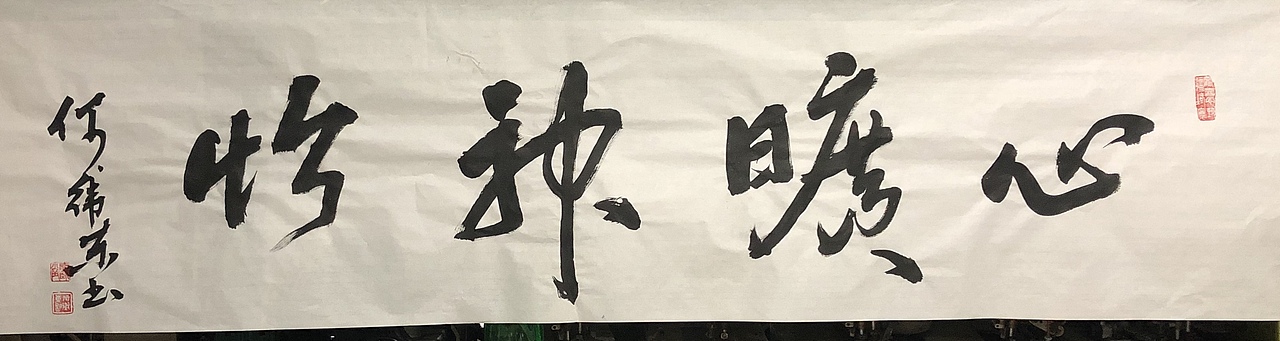 心曠神怡
何緯東书